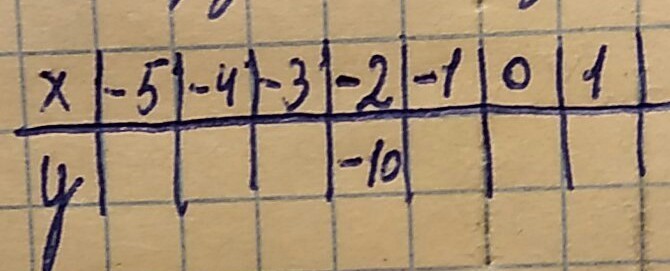 x -5 -4 -3 -2 -1 0 1
y -10